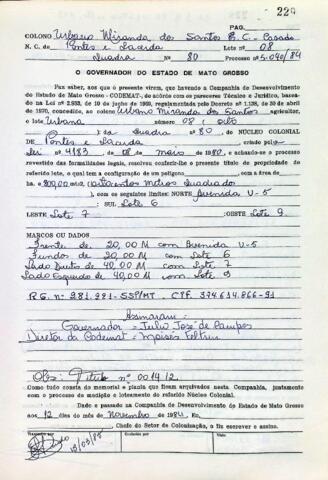 PAG.
229
COLONO Urbano Miranda dos Santos B.C. Casado
N. C. de Pontes e Lacerda Lote nº 08
Quadra Nº 80 Processo nº 5.040/84
O GOVERNADOR DO ESTADO DE MATO GROSSO
Faz saber, aos que o presente virem, que havendo a Companhia de Desenvolvimento
do Estado de Mato Grosso - CODEMAT, de acôrdo com os pareceres Técnico e Jurídico, basea-
do na Lei nº 2.933, de 10 de junho de 1969, regulamentado pelo Decreto nº 1.138, de 30 de abril
de 1970, concedido, ao colono Urbano Miranda dos Santos agricultor,
o lote Urbano número 08 ( oito
) da Quadra nº 80, do NÚCLEO COLONIAL
DE Pontes e Lacerda criado pela
Lei nº 4183, de 08 de maio de 1980, e achando-se o processo
revestido das formalidades legais, resolveu conferir-lhe o presente título de propriedade do
referido lote, o qual tem a configuração de um polígono com a área de
ha e 800,00 m2 (oitocentos metros quadrados
), com os seguintes limites: NORTE Avenida U-5
SUL Lote 6
LESTE Lote 7 :OESTE Lote 9
MARCOS OU DADOS
Frente de 20,00 M com Avenida U-5
Fundos de 20,00 M com Lote 6
Lado Direito de 40,00 M com Lote 7
Lado Esquerdo de 40,00 M com Lote 9
R.G. nº 281.981-SSP/MT. CPF. 374.614.866-91
Assinaram:
Governador = Julio José de Campos
Diretor da Codemat = Moises Feltrin
Obs: Titulo nº 001412
Como tudo consta do memorial e planta que ficam arquivados nesta Companhia, juntamente
com o processo de medição e loteamento do referido Núcleo Colonial.
Dado e passado na Companhia de Desenvolvimento do Estado de Mato Grosso
aos 12 dias do mês de Novembro de 1984. Eu,
Chefe do Setor de Colonização, o fiz escrever e assino.